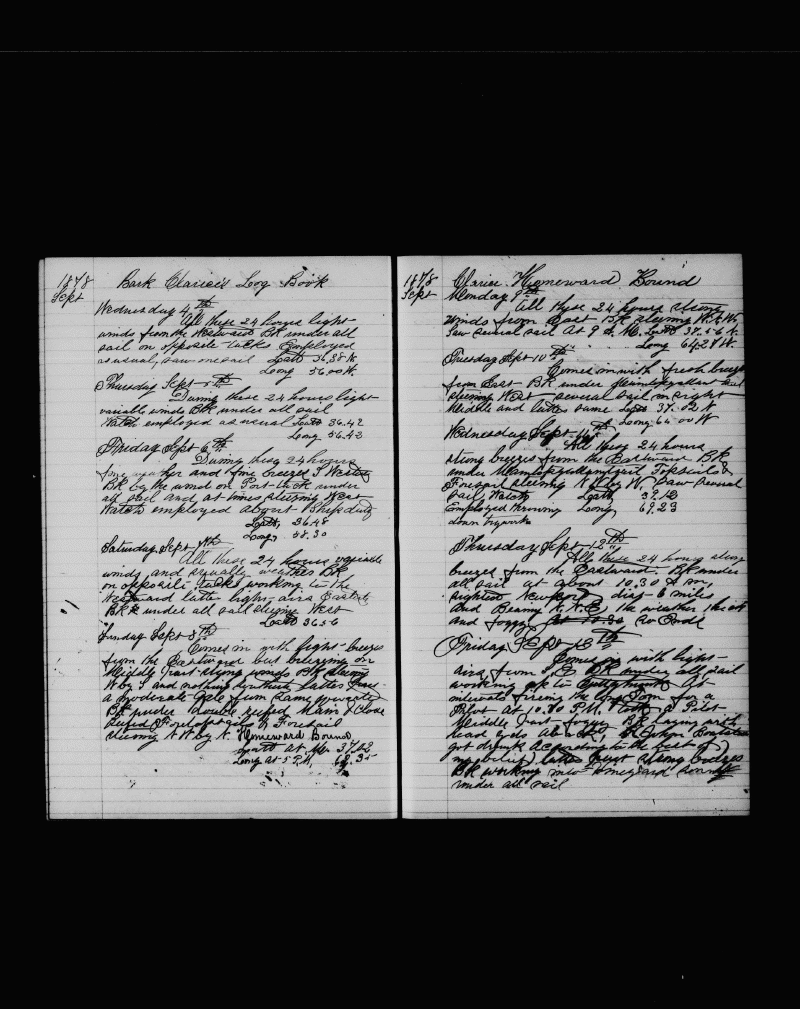 1878 Bark Clarice's Log Book
Sept
Wednesday 4th
All these 24 hours light
winds from the Westward Bk under all
sail on opposite tacks Employed
as usual, saw one sail Latt 36.38 N
Long 56.00 W.
Thursday Sept 5th
During these 24 hours light
variable winds Bk under all sail
Watch employed as usual Latt 36.42
Long 56.42
Friday Sept 6th
During these 24 hours
fine and fine breezes S Westerly
Bk by the wind on Port tack under
all sail and at times steering West
Watch employed about Ships duty
Latt, 36.48
Long, 58.30
Saturday Sept 7th
All these 24 hours variable
winds and squally weather Bk
on opposite tacks working to the
Westward latter light airs Easterly
Bk under all sail steering West
Latt 36 56
Sunday Sept 8th
Comes in with light breezes
from the Eastward but breezing on
Middle part strong winds Bk steering
W by S and nothing latter
a moderate Gale from same quarter
Bk under double reefed Main & close
reefed Fore topsail & Foresail
steering NW by N. Homeward Bound
Latt at M. 37.02
Long at 5 P.M. 62.35
1878 Clarice Homeward Bound
Sept Monday 9th
All these 24 hours strong
winds from East Bk steering
Saw several sail At 9 A. M. Latt 37.56 N.
Long 64.28 W.
Tuesday Sept 10th
Comes in with fresh breeze
from East Bk under sail
steering West several sail in sight
Middle and latter same Latt 37.02 N
Long 64 00 W
Wednesday Sept 11th
All these 24 hours
strong breezes from the Eastward Bk
under Topsail &
Foresail steering N W by W. Saw several
sail, Watch Latt 39.12
Employed throwing Long 69.23
down tryworks
Thursday Sept 12th
All these 24 hours strong
breezes from the Eastward. Bk under
all sail at about 10.30 A m,
sighted Newport dist 6 miles
and Bearing N.N.E, the weather thick
and foggy So Ends
Friday Sept 13th
Comes in with light
airs from E Bk under all sail
working up to At
intervals firing the Gun for a
Pilot At 10.40 P.M. took a Pilot
Middle part foggy Bk laying with
head yards Aback, John
got drunk according to the best of
my belief, latter part strong breezes
Bk working into Vineyard Sound
under all sail